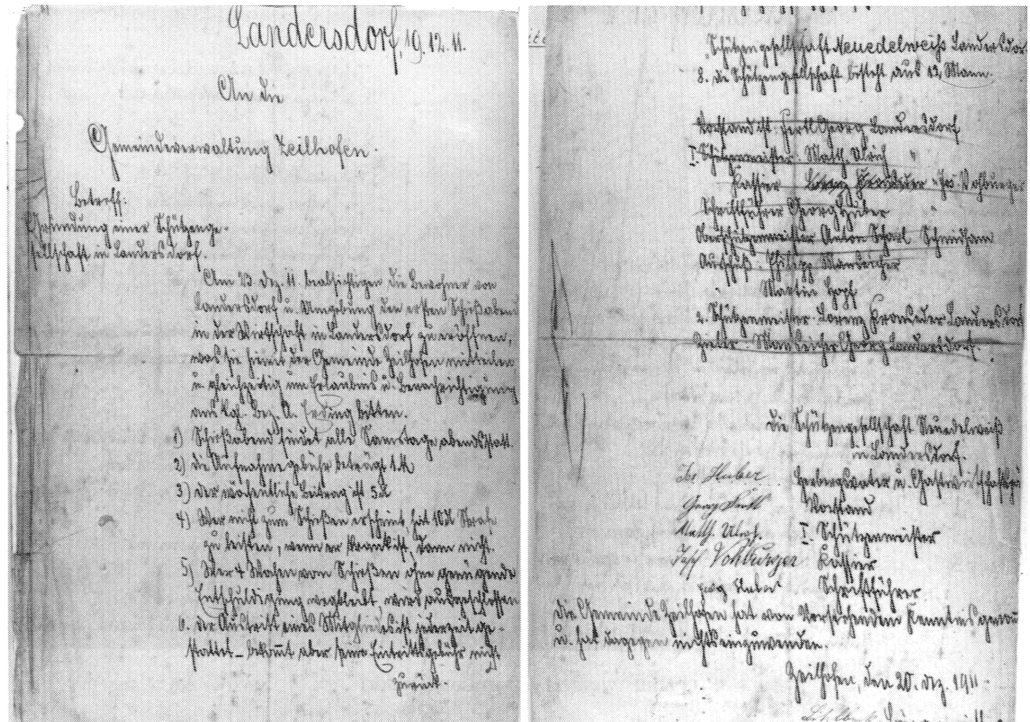 Landersdorf, 19.12.11.
An die
Gemeindeverwaltung Zeilhofen.
Betreff:
Gründung einer Schützenge-
sellschaft in Landersdorf.
Am 23. Dez. 11 beabsichtigen die Bewohner von
Landersdorf u. Umgebung den ersten Schießabend
in der Wirtschaft in Landersdorf zu eröffnen,
was sie hiemit der Gemeinde Zeilhofen mitteilen
u. gleichzeitig um Erlaubnis u. Benachrichtigung
am Kgl. Bez. A. Erding bitten.
1) Schießabend findet alle Samstage abends statt.
2) die Aufnahmegebühr beträgt 1 M
3) der wöchentliche Beitrag ist 5 d
4) Wer nicht zum Schießen erscheint, hat 10 d Strafe
zu leisten, wenn er krank ist, dann nicht.
5) Wer 4 Wochen vom Schießen ohne genügende
Entschuldigung wegbleibt, wird ausgeschlossen
6. der Austritt eines Mitgliedes ist jederzeit ge-
stattet – bekommt aber seine Eintrittgebühr nicht
zurück.
Schützengesellschaft Neuedelweiß Landersdorf
8. die Schützengesellschaft besteht aus 12 Mann.
Vorstand ist: Georg Landersdorf
I. Schützenmeister Matth. Ulrich
Kassier Vohburger
Schriftführer Georg Huber
Oberschützenmeister Anton
Ausschuß: Philipp
Martin
2. Schützenmeister Lorenz Landersdorf
Georg Landersdorf.
die Schützengesellschaft Neuedelweiß
in Landersdorf.
Jos Huber u.
Georg Vorstand
Matth. Ulrich I. Schützenmeister
Josef Vohburger Kassier
Georg Huber Schriftführer
die Gemeinde Zeilhofen hat von Vorstehendem Kenntnis genom
u. hat dagegen nichts einzuwenden.
Zeilhofen, den 20. Dez. 1911.